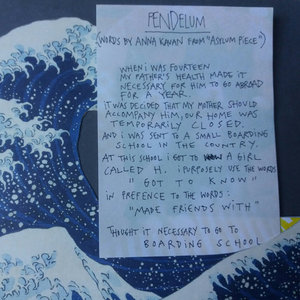 PENDELUM
(WORDS BY ANNA KAVAN FROM "ASYLUM PIECE")
WHEN I WAS FOURTEEN
MY FATHER'S HEALTH MADE IT
NECESSARY FOR HIM TO GO ABROAD
FOR A YEAR.
IT WAS DECIDED THAT MY MOTHER SHOULD
ACCOMPANY HIM, OUR HOME WAS
TEMPORARILY CLOSED
AND I WAS SENT TO A SMALL BOARDING
SCHOOL IN THE COUNTRY.
AT THIS SCHOOL I GOT TO A GIRL
CALLED H. I PURPOSELY USE THE WORDS
"GOT TO KNOW"
IN PREFENCE TO THE WORDS:
"MADE FRIENDS WITH"
THOUGHT IT NECESSARY TO GO TO
BOARDING SCHOOL